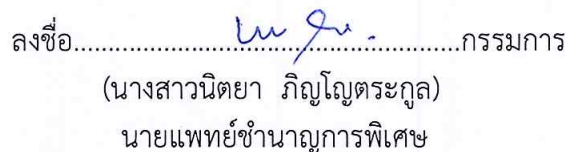 ลงชื่อ................................................กรรมการ
(นางสาวนิตยา ภิญโญตระกูล)
นายแพทย์ชำนาญการพิเศษ